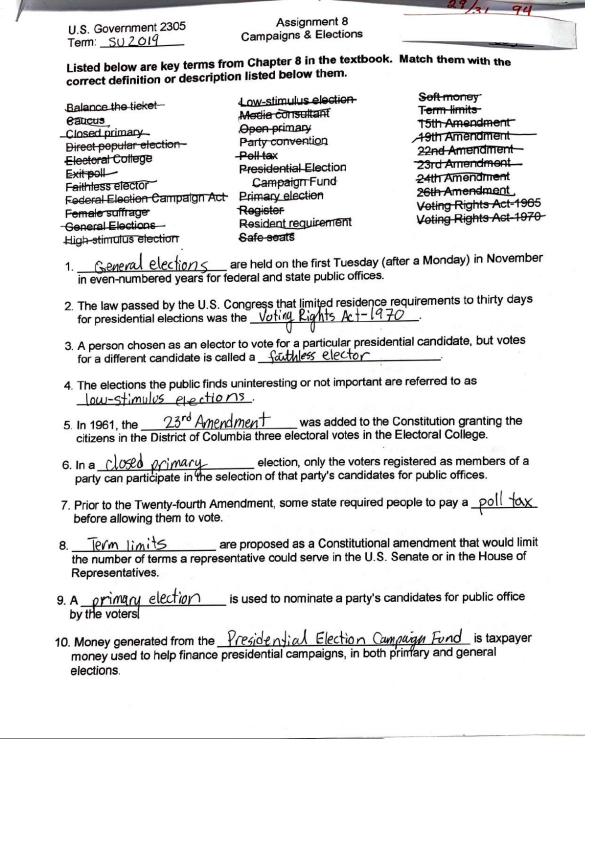 29/31 94
U.S. Government 2305
Term: SU 2019
Assignment 8
Campaigns & Elections
Listed below are key terms from Chapter 8 in the textbook. Match them with the
correct definition or description listed below them.
Balance the ticket
Caucus
Closed primary
Direct popular election
Electoral College
Exit poll
Faithless elector
Federal Election Campaign Act
Female suffrage
General Elections
High-stimulus election
Low-stimulus election
Media consultant
Open primary
Party convention
Poll tax
Presidential Election
Campaign Fund
Primary election
Register
Resident requirement
Safe seats
Soft money
Term limits
15th Amendment
19th Amendment
22nd Amendment
23rd Amendment
24th Amendment
26th Amendment
Voting Rights Act-1965
Voting Rights Act-1970
1. General elections are held on the first Tuesday (after a Monday) in November
in even-numbered years for federal and state public offices.
2. The law passed by the U.S. Congress that limited residence requirements to thirty days
for presidential elections was the Voting Rights Act-1970.
3. A person chosen as an elector to vote for a particular presidential candidate, but votes
for a different candidate is called a faithless elector.
4. The elections the public finds uninteresting or not important are referred to as
low-stimulus elections.
5. In 1961, the 23rd Amendment was added to the Constitution granting the
citizens in the District of Columbia three electoral votes in the Electoral College.
6. In a closed primary election, only the voters registered as members of a
party can participate in the selection of that party's candidates for public offices.
7. Prior to the Twenty-fourth Amendment, some state required people to pay a poll tax
before allowing them to vote.
8. Term limits are proposed as a Constitutional amendment that would limit
the number of terms a representative could serve in the U.S. Senate or in the House of
Representatives.
9. A primary election is used to nominate a party's candidates for public office
by the voters
10. Money generated from the Presidential Election Campaign Fund is taxpayer
money used to help finance presidential campaigns, in both primary and general
elections.